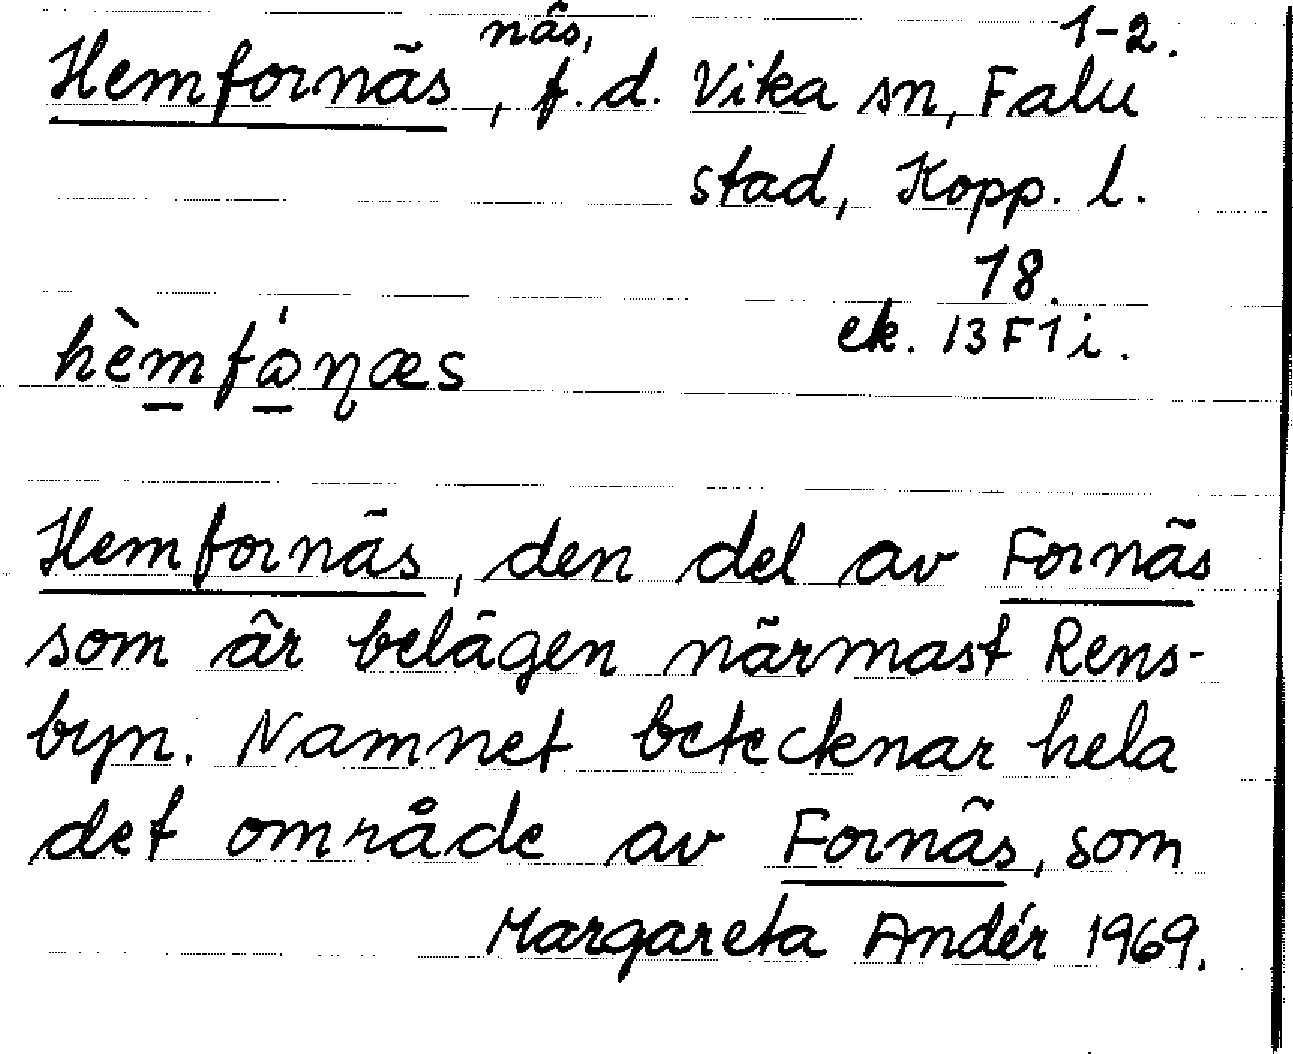 näs, 1-2.
Hemfornäs, f.d. Vika sn, Falu
stad, Kopp. l.
18.
ek. 13F1i.
hèmfɷ́ɳæs
Hemfornäs, den del av Fornäs
som är belägen närmast Rens-
byn. Namnet betecknar hela
det område av Fornäs, som
Margareta Andér 1969.